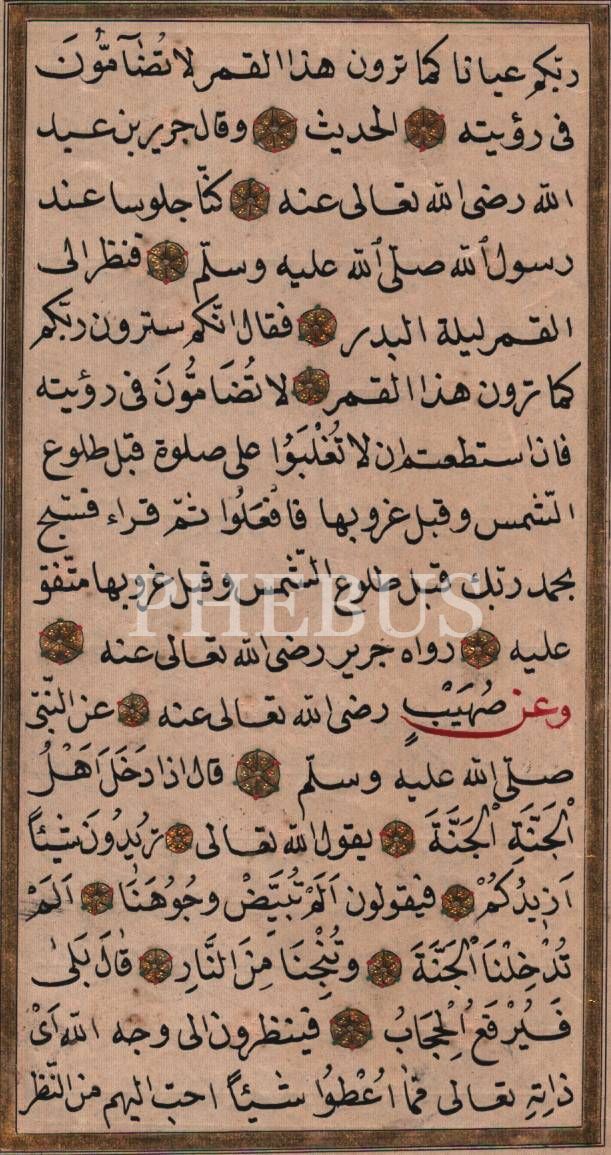 ربّكم عيانا كما ترون هذا القمر لا تُضَآمُّونَ
فى رؤيته الحديث وقال جرير بن عبد
الله رضى الله تعالى عنه كنّا جلوسا عند
رسول ٱلله صلّى ٱلله عليه وسلّم فنظر الى
القمر ليلة البدر فقال انّكم سترون ربّكم
كما ترون هذا القمر لا تُضَامُّونَ فى رؤيته
فان استطعتم ان لا تُغْلَبَوُا على صلوة قبل طلوع
الشّمس وقبل غروبها فافْعَلُوا ثمّ قراء فسبّح
بحمد ربّك قبل طلوع الشّمس وقبل غروبها متّفق
PHEBUS
عليه رواه جرير رضى الله تعالى عنه
وعن صُهَيْبٍ رضى الله تعالى عنه عن النّبّى
صلّى الله عليه وسلّم قال اذا دَخَلَ اَهْلُ
ٱلْجَنَّةِ ٱلْجَنَّةَ يقول الله تعالى تُرِيدُونَ شَيْئاً
اَزِيدُكُمْ فيقولون اَلَمْ تُبَيِّضْ وجُوُهَنَا اَلَمْ
تُدْخِلْنَا ٱلْجَنَّةَ وتُنْجِنَا مِنَ النَّارِ قٰالَ بَلٰى
فَيُرْفَعُ الْحِجَابُ فينظرون الى وجه الله اَىْ
ذاتِهِ تعالى فمٰا اُعْطُوا شَيْئاً احبّ اليهم من النّظر